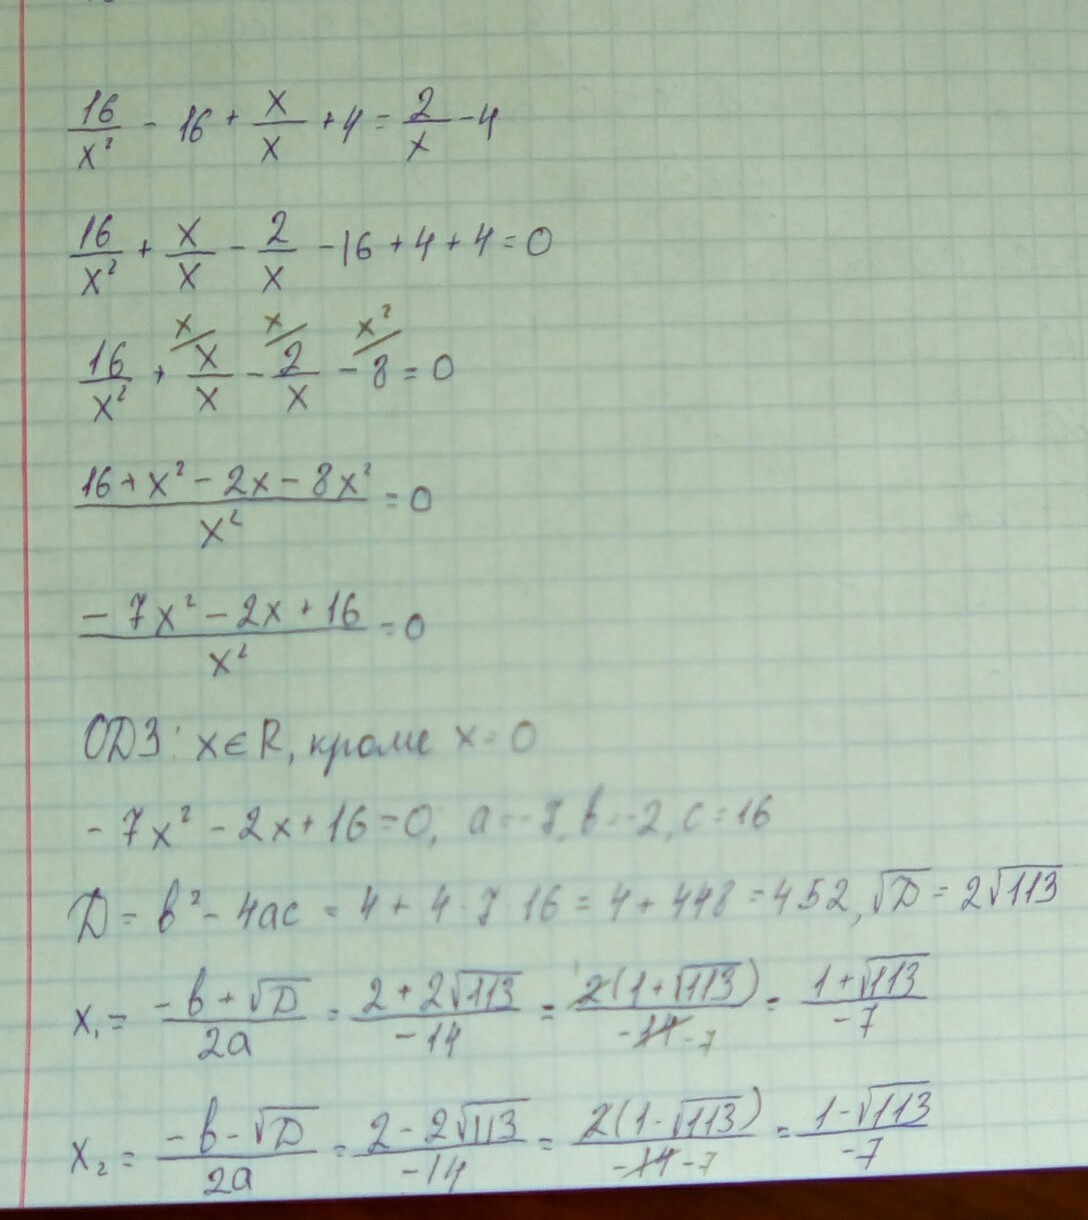 16/x² - 16 + x/x + 4 = 2/x - 4
16/x² + x/x - 2/x - 16 + 4 + 4 = 0
x/ x/ x²/
16/x² + x/x - 2/x - 8 = 0
(16 + x² - 2x - 8x²)/x² = 0
(- 7x² - 2x + 16)/x² = 0
ОДЗ: x∈R, кроме x = 0
- 7x² - 2x + 16 = 0, a = -7, b = -2, c = 16
D = b² - 4ac = 4 + 4 · 7 · 16 = 4 + 448 = 452, √D = 2√113
x₁ = (-b + √D)/2a = (2 + 2√113)/-14 = 2(1 + √113)/-14 -7 = (1 + √113)/-7
x₂ = (-b - √D)/2a = (2 - 2√113)/-14 = 2(1 - √113)/-14 -7 = (1 - √113)/-7